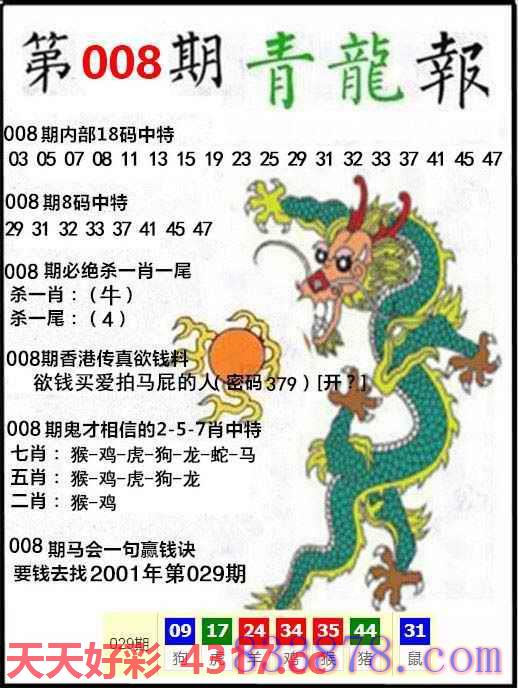 第008期青龍報
008期内部18码中特
03 05 07 08 11 13 15 19 23 25 29 31 32 33 37 41 45 47
008期8码中特
29 31 32 33 37 41 45 47
008期必绝杀一肖一尾
杀一肖：（牛）
杀一尾：（4）
008期香港传真欲钱料
欲钱买爱拍马屁的人(密码379)[开？]
008期鬼才相信的2-5-7肖中特
七肖：猴-鸡-虎-狗-龙-蛇-马
五肖：猴-鸡-虎-狗-龙
二肖：猴-鸡
008期马会一句赢钱诀
要钱去找2001年第029期
029期 09 17 24 34 35 44 31
狗 虎 羊 鸡 猴 猪 鼠
天天好彩 4317.cc